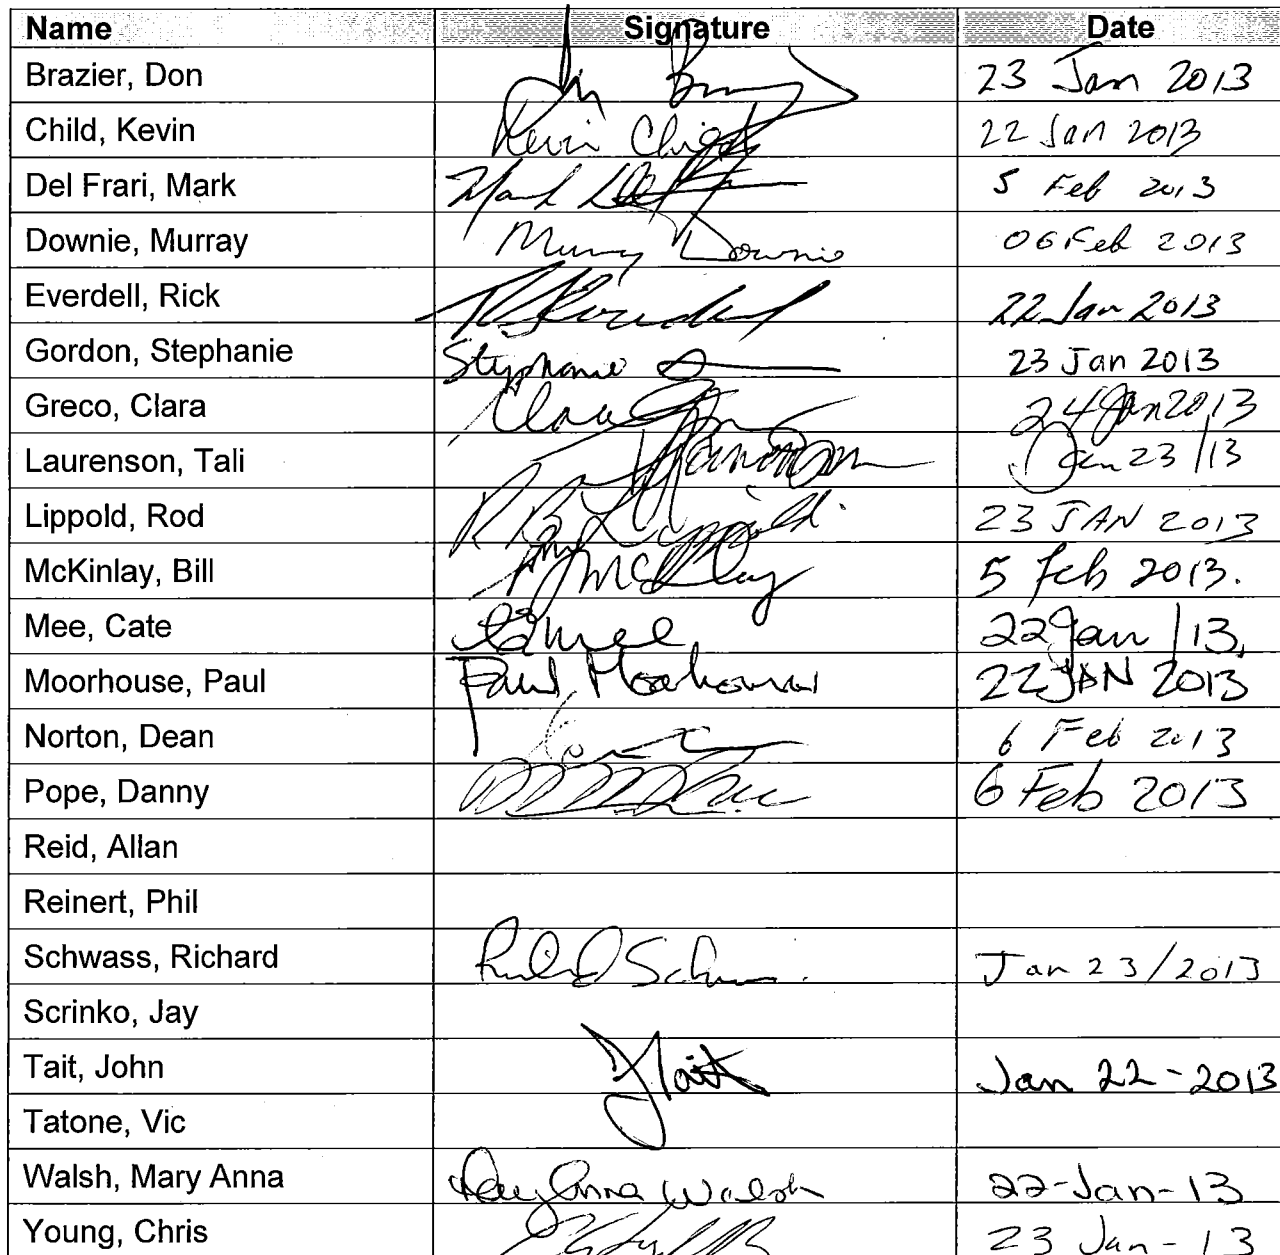 Name Signature Date
Brazier, Don 23 Jan 2013
Child, Kevin Kevin Child 22 Jan 2013
Del Frari, Mark Mark 5 Feb 2013
Downie, Murray Murray Downie 06 Feb 2013
Everdell, Rick R Everdell 22 Jan 2013
Gordon, Stephanie Stephanie 23 Jan 2013
Greco, Clara Clara 24 Jan 2013
Laurenson, Tali Jan 23/13
Lippold, Rod R B Lippold. 23 JAN 2013
McKinlay, Bill McKinlay 5 Feb 2013.
Mee, Cate CMee 22 Jan /13,
Moorhouse, Paul Paul Moorhouse 22 JAN 2013
Norton, Dean 6 Feb 2013
Pope, Danny 6 Feb 2013
Reid, Allan
Reinert, Phil
Schwass, Richard Richard Jan 23/2013
Scrinko, Jay
Tait, John J Tait Jan 22-2013
Tatone, Vic
Walsh, Mary Anna Mary Anna Walsh 22-Jan-13
Young, Chris 23 Jan-13